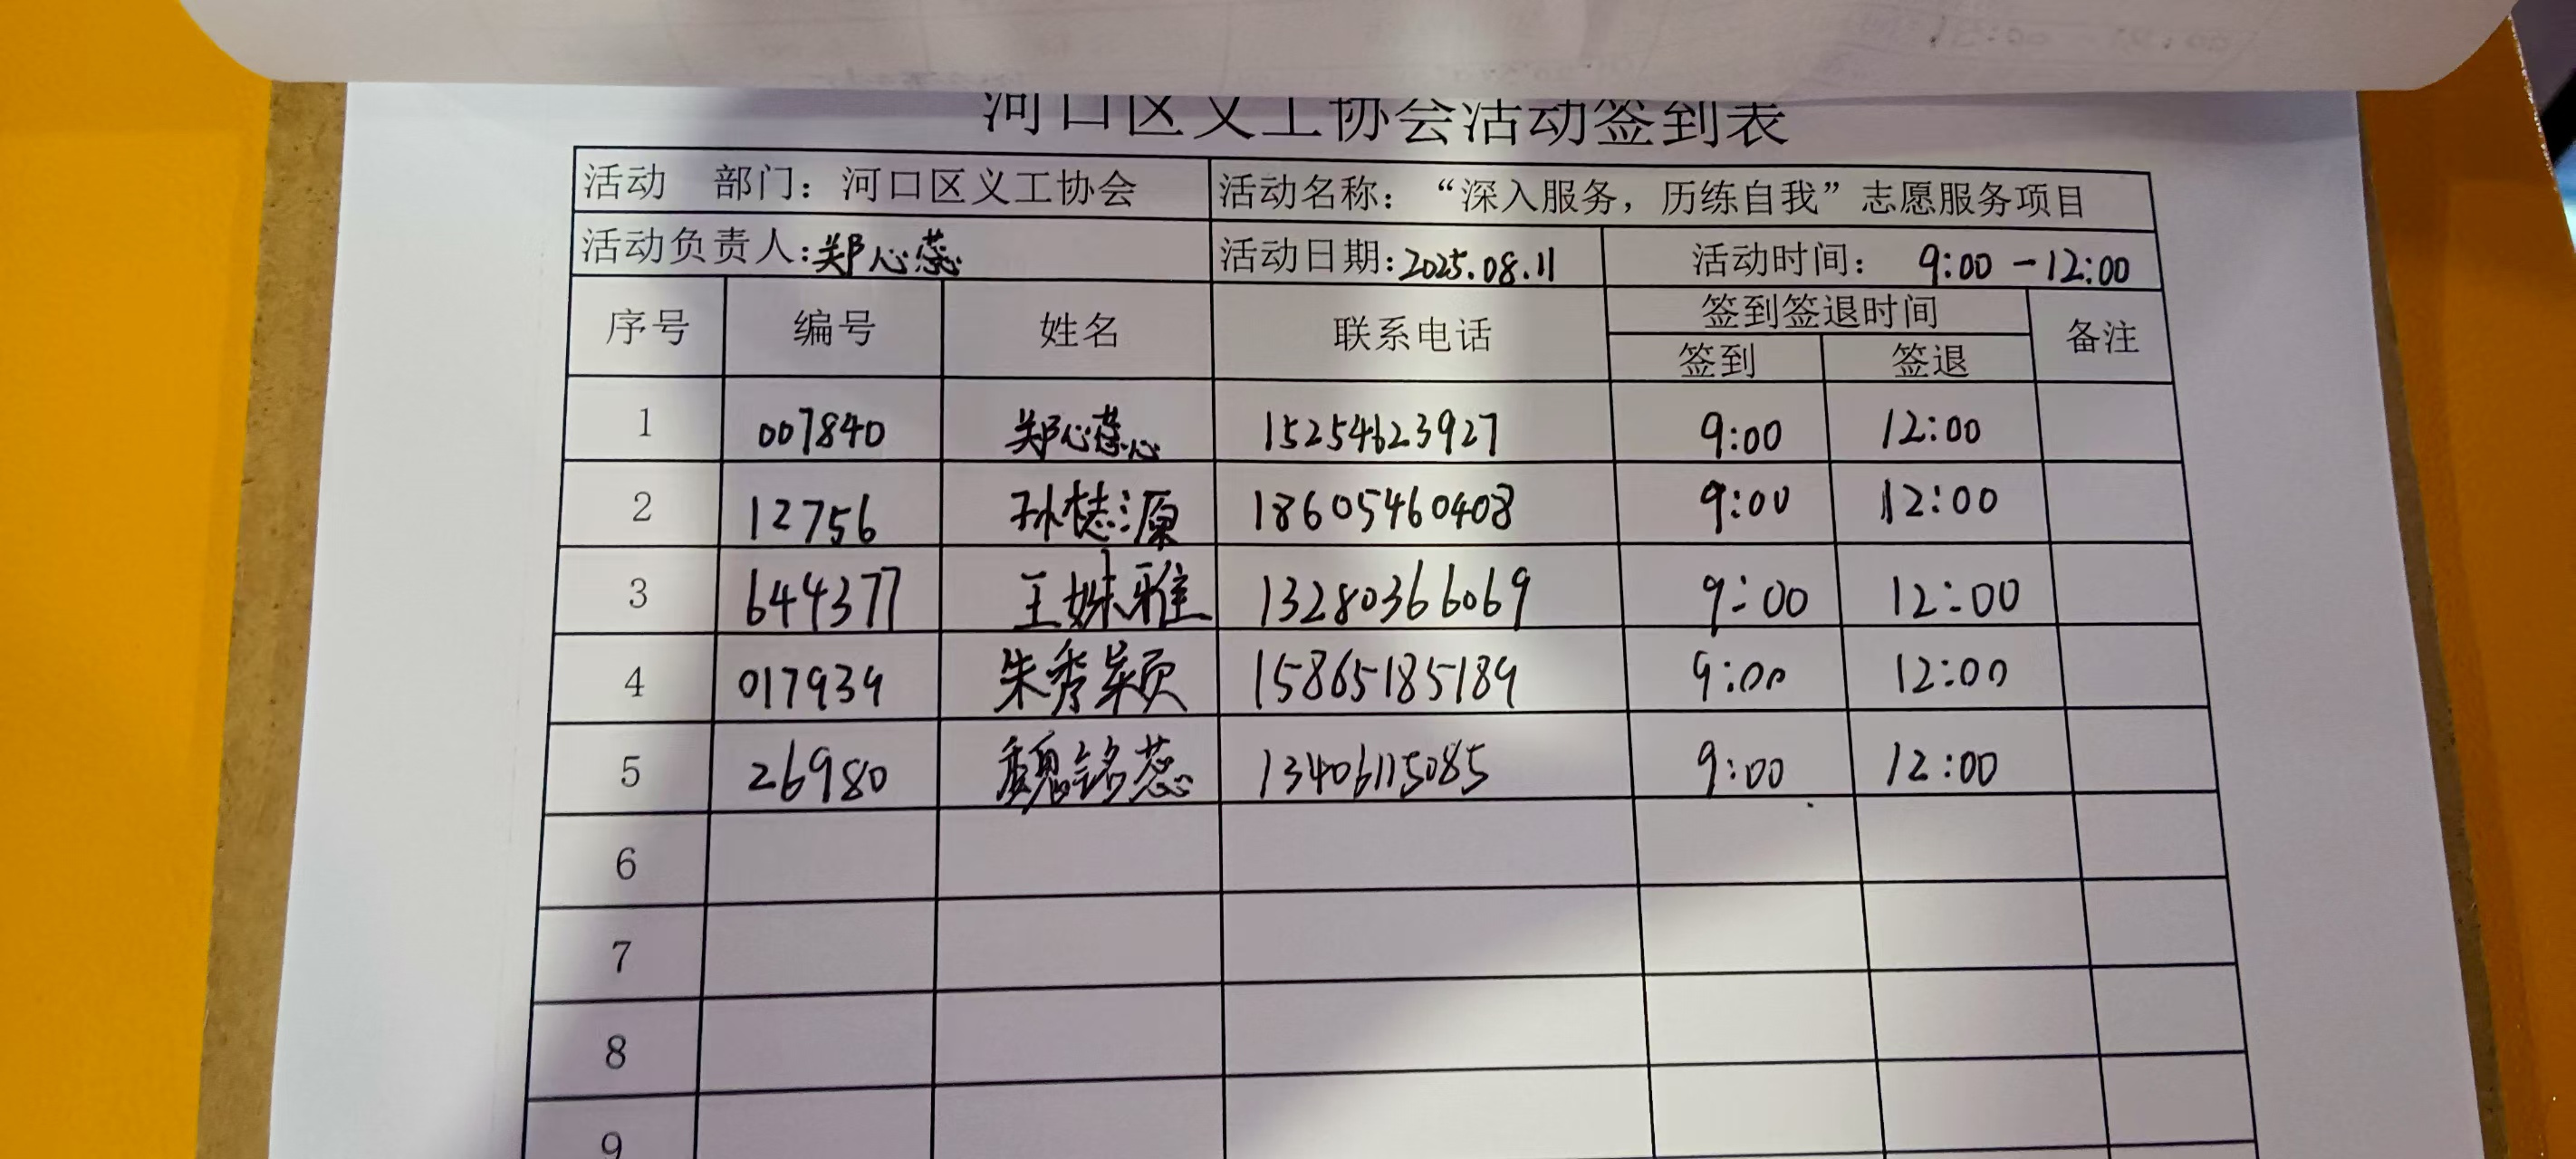 河口区义工协会活动签到表
活动 部门：河口区义工协会 活动名称：“深入服务，历练自我”志愿服务项目
活动负责人：郑心蕊 活动日期：2025.08.11 活动时间： 9:00-12:00
序号 编号 姓名 联系电话 签到签退时间 备注
签到 签退
1 007840 郑心蕊 15254623927 9:00 12:00
2 12756 孙梽源 18605460408 9:00 12:00
3 644377 王姝雅 13280366069 9:00 12:00
4 017939 朱秀颖 15865185189 9:00 12:00
5 26980 魏铭蕊 13406115085 9:00 12:00
6
7
8
9